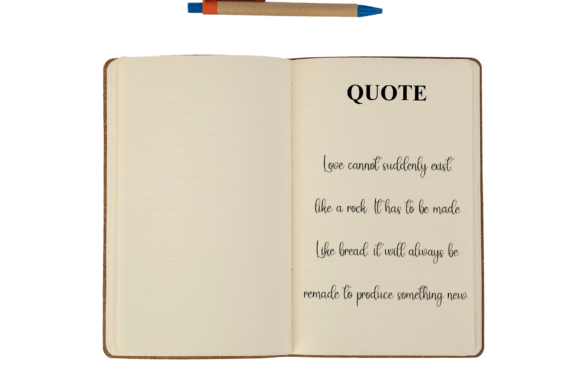 QUOTE
Love cannot suddenly exist.
like a rock. It has to be made
Like bread. it will always be
remade to produce something new